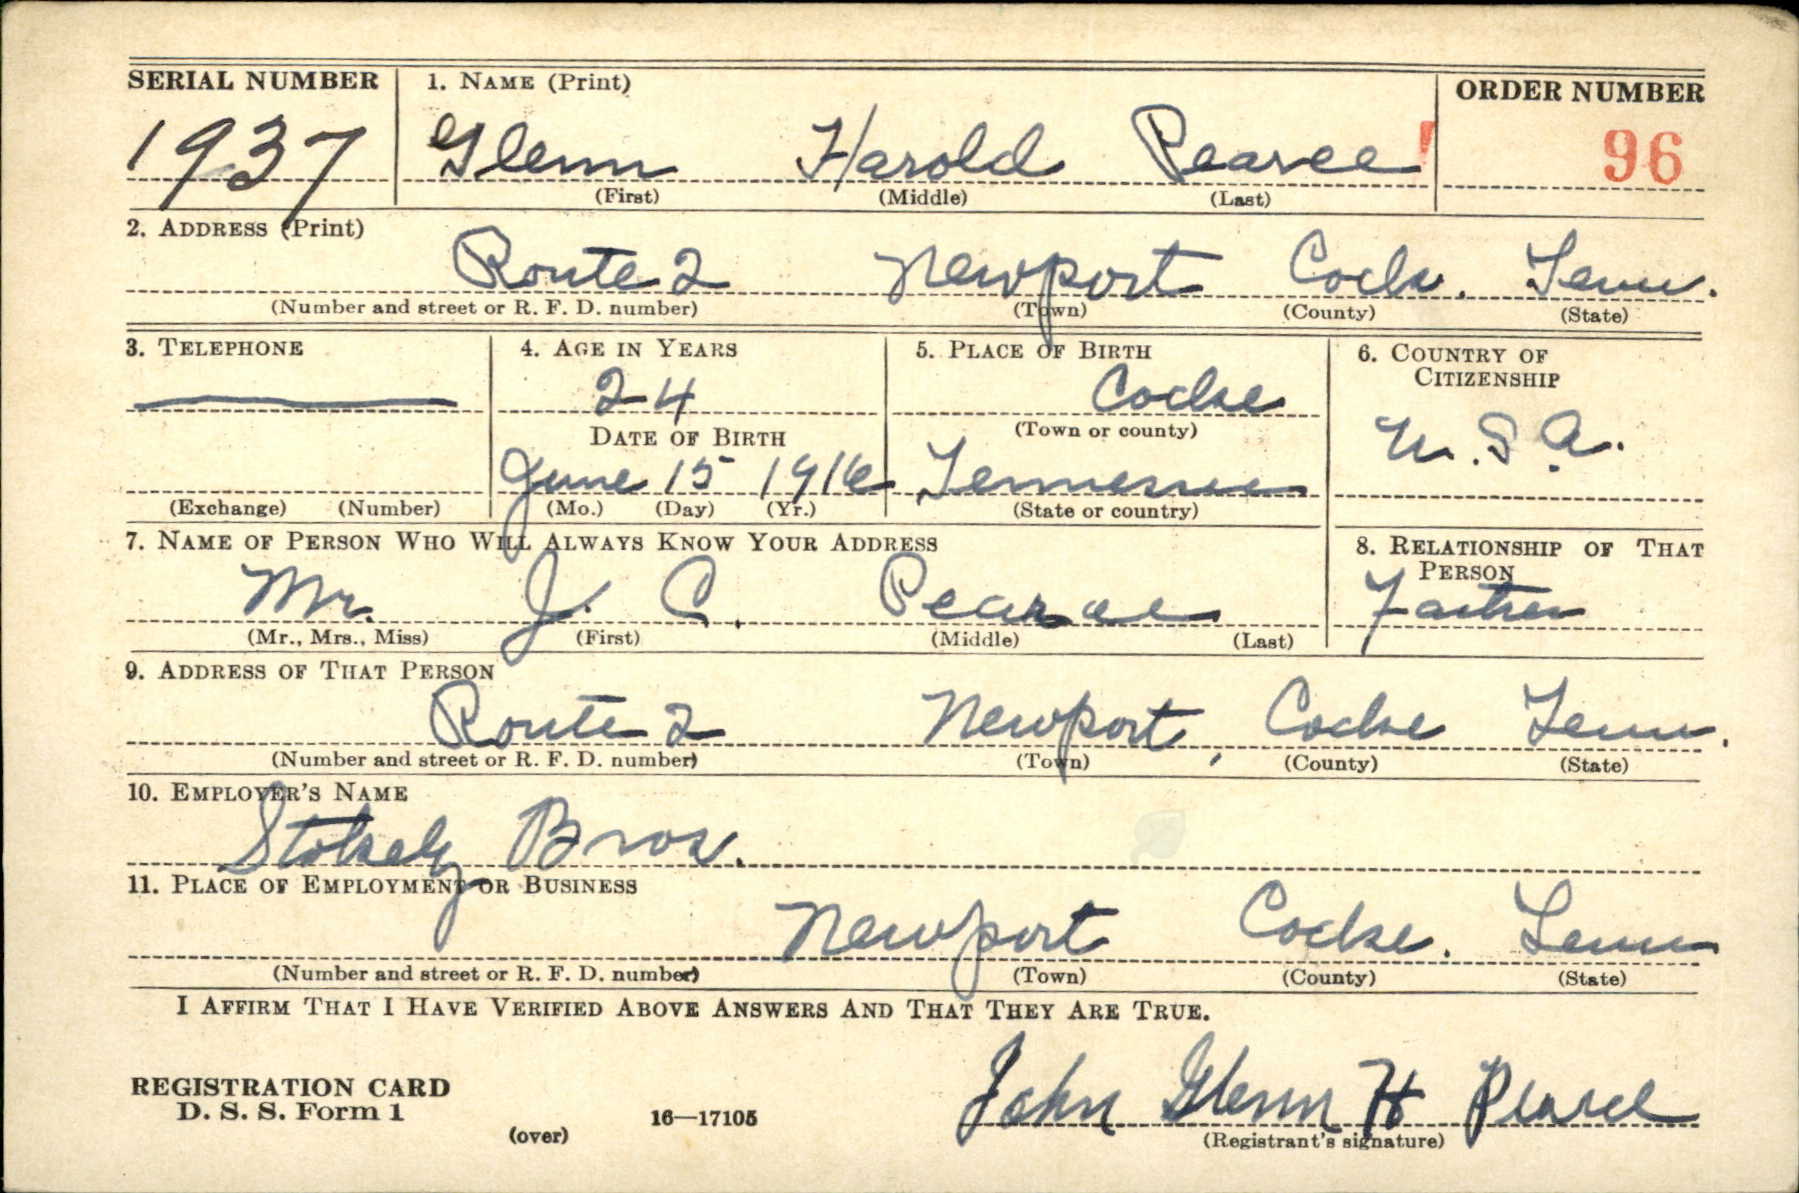 SERIAL NUMBER 1. NAME (Print) ORDER NUMBER
1937 Glenn Harold Pearce 96
(First) (Middle) (Last)
2. ADDRESS (Print)
Route 2 Newport Cocke. Tenn.
(Number and street or R. F. D. number) (Town) (County) (State)
3. TELEPHONE 4. AGE IN YEARS 5. PLACE OF BIRTH 6. COUNTRY OF
CITIZENSHIP
24 Cocke
(Town or county)
DATE OF BIRTH U. S. A.
June 15 1916 Tennessee
(Exchange) (Number) (Mo.) (Day) (Yr.) (State or country)
7. NAME OF PERSON WHO WILL ALWAYS KNOW YOUR ADDRESS 8. RELATIONSHIP OF THAT
PERSON
Mr. J. C. Pearce Father
(Mr., Mrs., Miss) (First) (Middle) (Last)
9. ADDRESS OF THAT PERSON
Route 2 Newport, Cocke Tenn.
(Number and street or R. F. D. number) (Town) (County) (State)
10. EMPLOYER'S NAME
Stokely Bros.
11. PLACE OF EMPLOYMENT OR BUSINESS
Newport Cocke. Tenn
(Number and street or R. F. D. number) (Town) (County) (State)
I AFFIRM THAT I HAVE VERIFIED ABOVE ANSWERS AND THAT THEY ARE TRUE.
REGISTRATION CARD
D. S. S. Form 1 16—17105 John Glenn H Pearce
(over) (Registrant's signature)